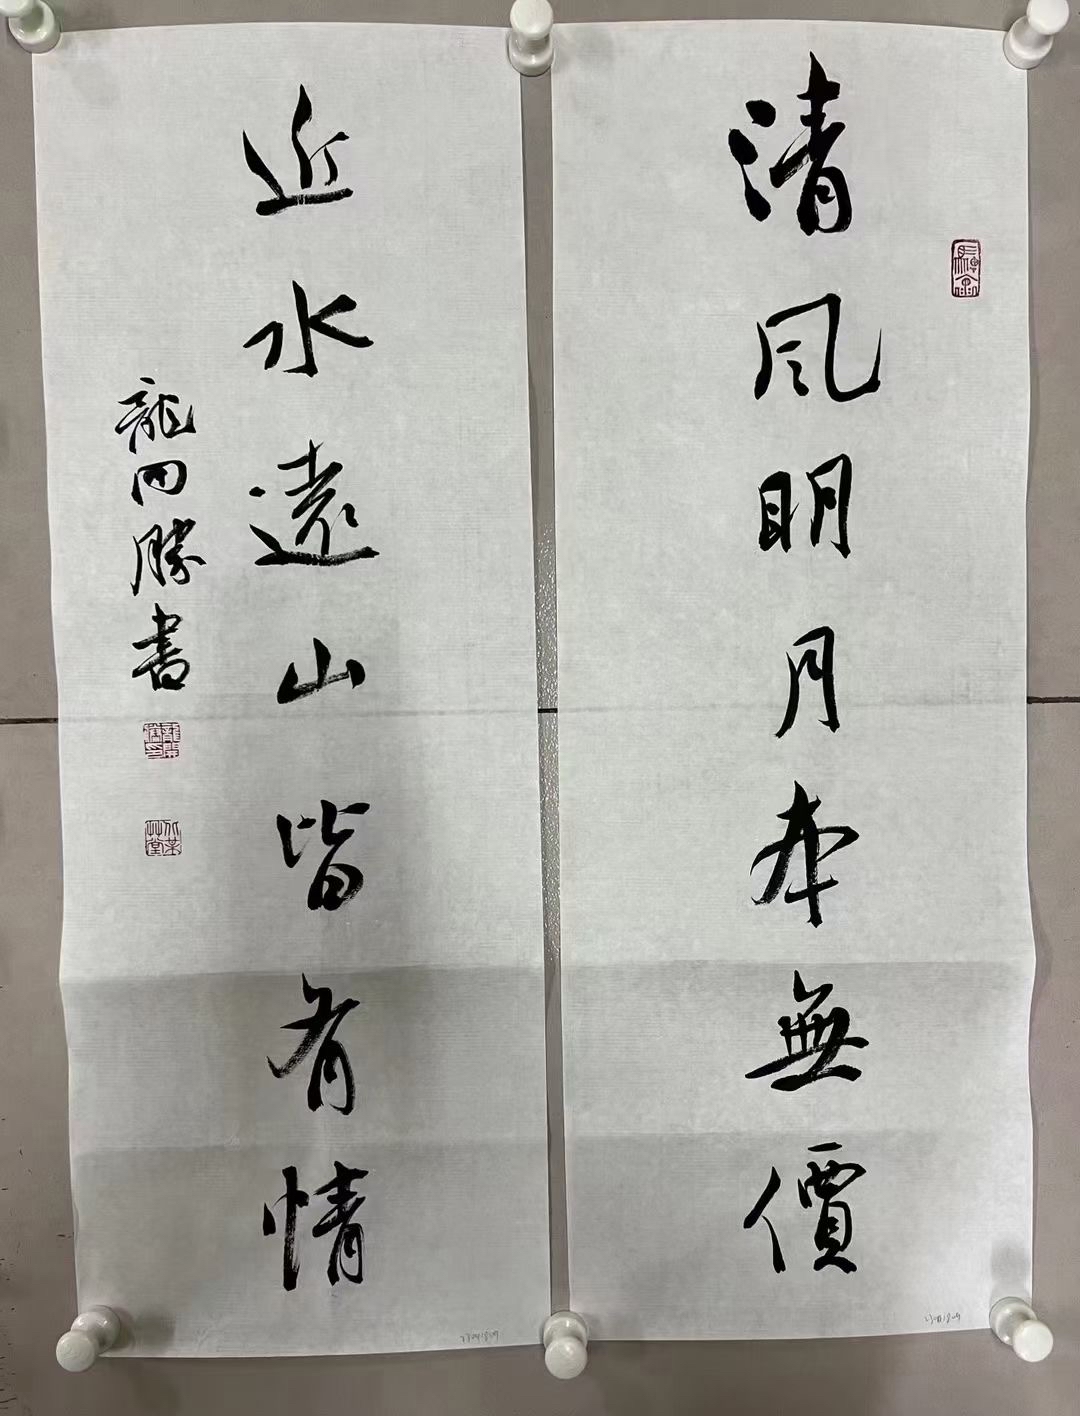 清風明月本無價
近水遠山皆有情
龍田勝書